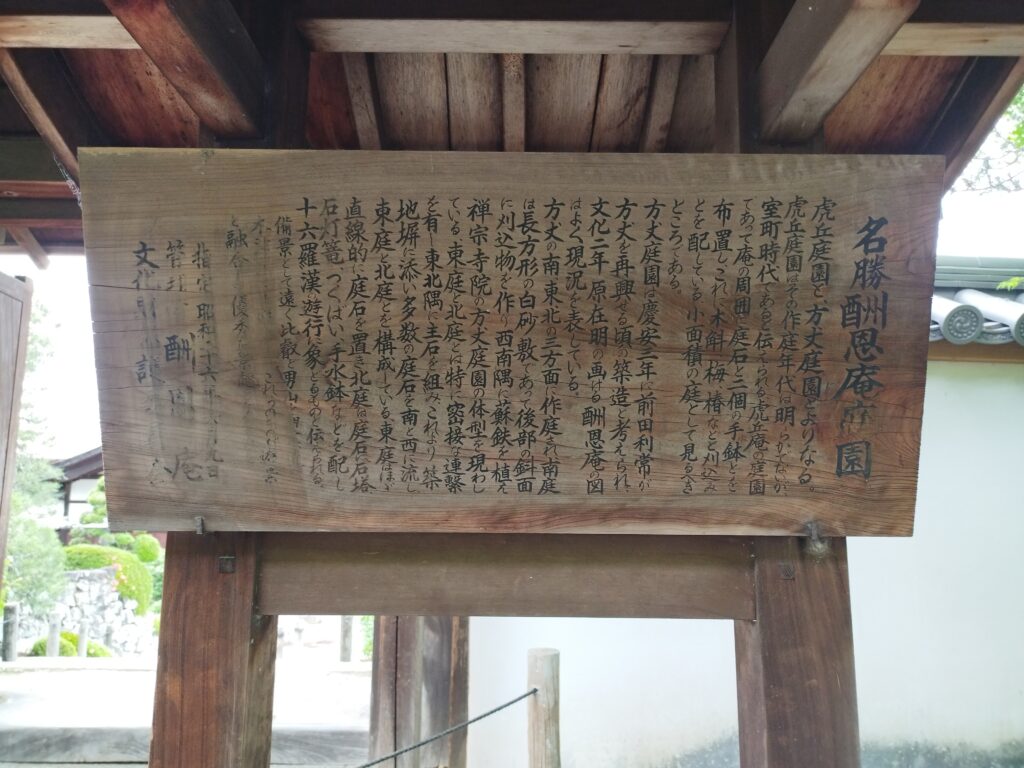 名勝酬恩庵庭園
虎丘庭園と、方丈庭園とよりなる。
虎丘庭園はその作庭年代は明らかでないが、
室町時代であると伝えられる虎丘庵の庭園
であって庵の周囲に庭石と二個の手鉢とを
布置しこれに木斛梅椿などと刈込み
とを配している小面積の庭として見るべき
ところである。
方丈庭園は慶安三年に前田利常が
方丈を再興せる頃の築造と考えられ、
文化二年原在明の画ける酬恩庵の図
はよく現況を表している。
方丈の南東北の三方面に作庭され南庭
は長方形の白砂敷であって後部の斜面
に刈込物を作り西南隅に蘇鉄を植え
禅宗寺院の方丈庭園の体型を現わし
ている東庭と北庭とは特に密接な連繋
を有し東北隅に主石を組みこれより築
地塀に添い多数の庭石を南と西に流し
東庭と北庭とを構成している東庭はほゞ
直線的に庭石を置き北庭は庭石石塔
石灯篭、つくばい、手水鉢などを配し
十六羅漢遊行に象どるものと伝られる。
備景として遠く比叡男山
と融合し優
指定昭和
管理 酬恩庵
文化財